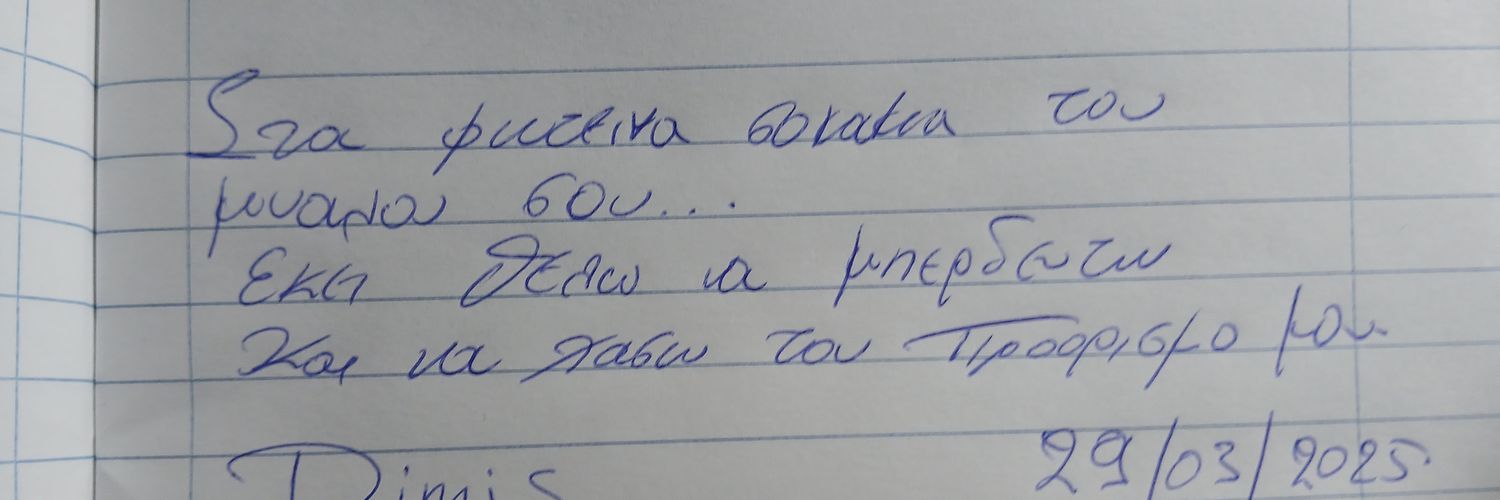 Στα φωτεινα σοκακια του
μυαλου σου...
Εκει θελω να μπερδευτω
Και να χασω τον Προορισμο μου.
Dimis 29/03/2025